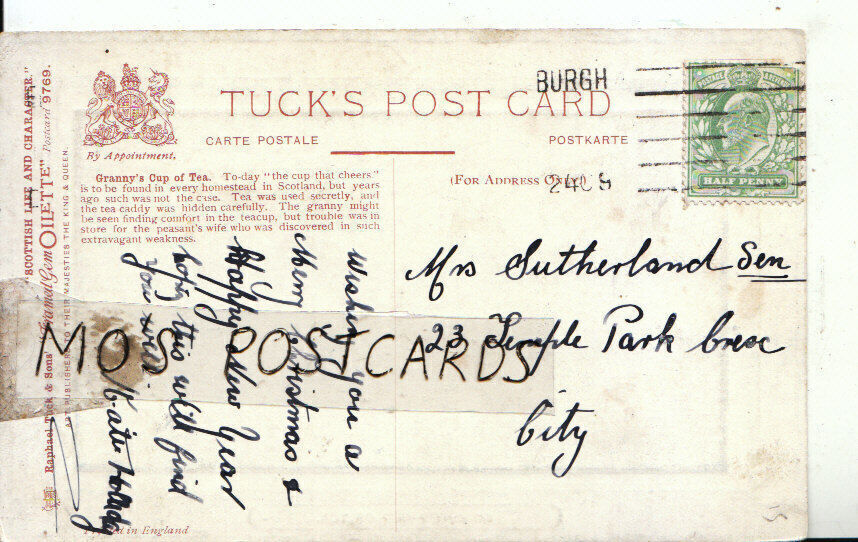 "SCOTTISH LIFE AND CHARACTER."
Raphael Tuck & Sons' "Framed Gem OILETTE" Postcard 9769.
ART PUBLISHERS TO THEIR MAJESTIES THE KING & QUEEN.
By Appointment.
TUCK'S POST CARD
CARTE POSTALE
POSTKARTE
BURGH
POSTAGE
HALF PENNY
Granny's Cup of Tea. To-day "the cup that cheers."
is to be found in every homestead in Scotland, but years
ago such was not the case. Tea was used secretly, and
the tea caddy was hidden carefully. The granny might
be seen finding comfort in the teacup, but trouble was in
store for the peasant's wife who was discovered in such
extravagant weakness.
(FOR ADDRESS ONLY.)
Wishing you a
Merry Christmas &
Happy New Year
hoping this will find
you well.
Kate
Mrs Sutherland Sen
23 Temple Park Cresc
City
MO'S POSTCARDS
Printed in England